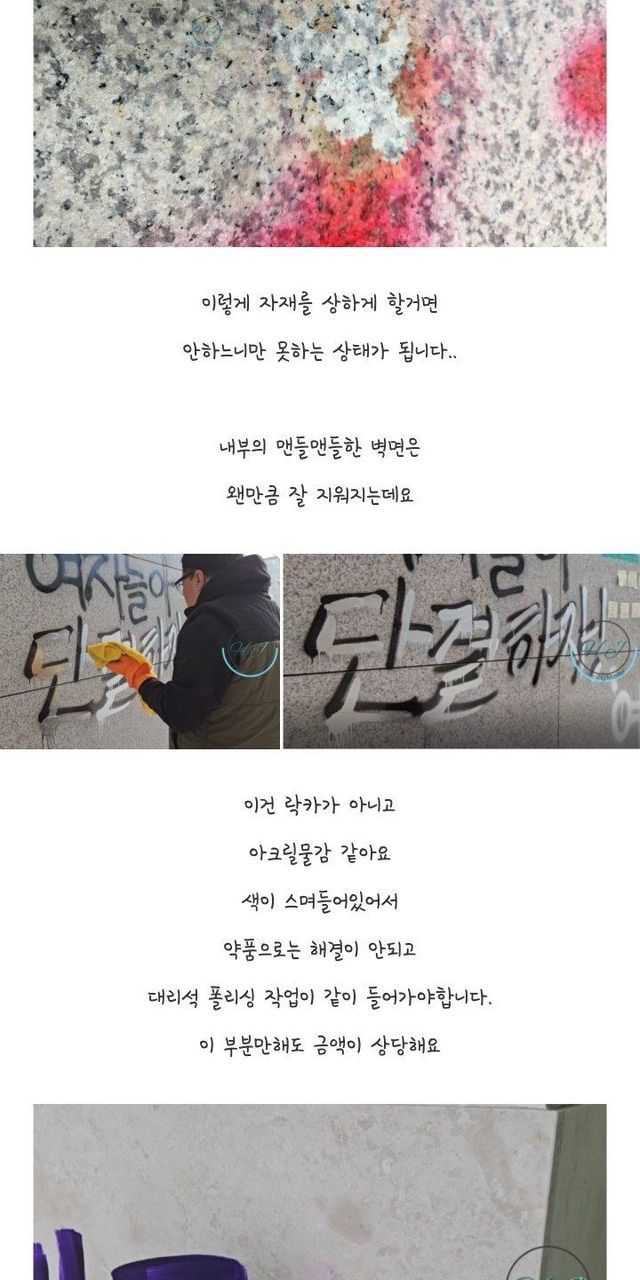 이렇게 자재를 상하게 할거면
안하느니만 못하는 상태가 됩니다..
내부의 맨들맨들한 벽면은
왠만큼 잘 지워지는데요
여자들아
단결하자
단결하자
이건 락카가 아니고
아크릴물감 같아요
색이 스며들어있어서
약품으로는 해결이 안되고
대리석 폴리싱 작업이 같이 들어가야합니다.
이 부분만해도 금액이 상당해요